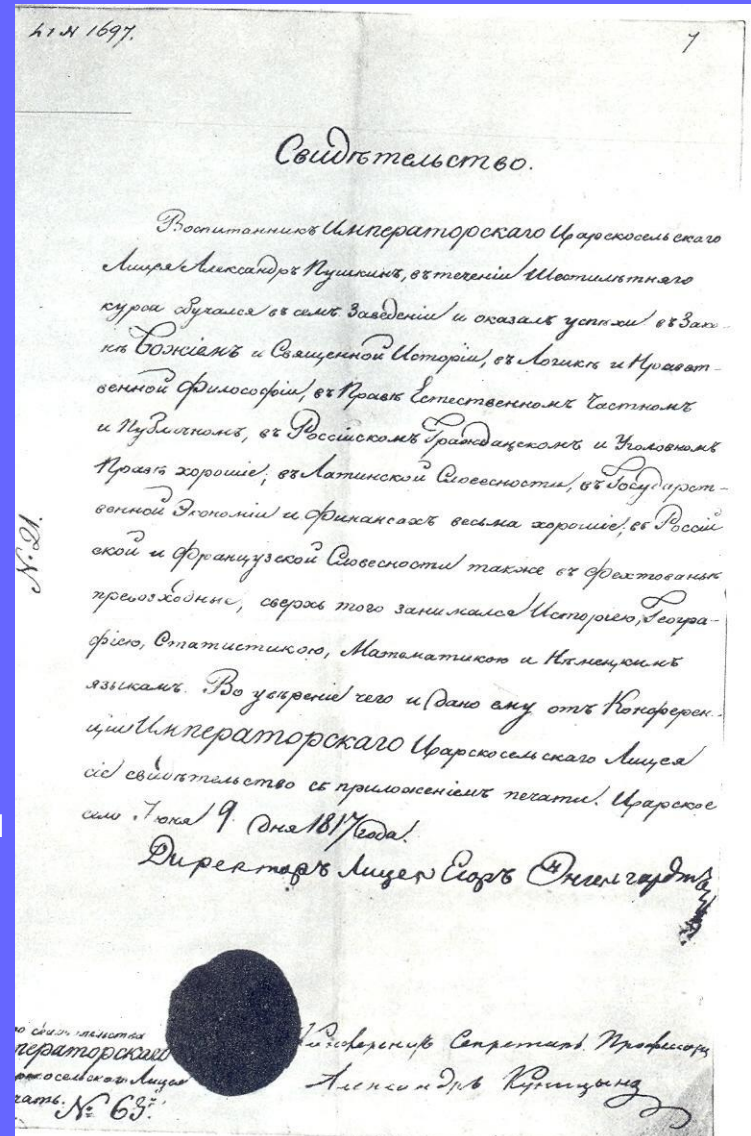 1697.
7
Свидѣтельство.
Воспитанникъ Императорскаго Царскосельскаго
Лицея Александръ Пушкинъ, въ теченіи Шестилѣтняго
курса обучался въ семъ Заведеніи и оказалъ успѣхи въ Зако-
нѣ Божіемъ и Священной Исторіи, въ Логикѣ и Нравст-
венной Философіи, въ Правѣ Естественномъ Частномъ
и Публичномъ, въ Россійскомъ Гражданскомъ и Уголовномъ
Правѣ хорошіе; въ Латинской Словесности, въ Государст-
венной Экономіи и Финансахъ весьма хорошіе; въ Россій
ской и Французской Словесности также въ Фехтованьи
превосходные, сверхъ того занимался Исторіею, Геогра-
фіею, Статистикою, Математикою и Нѣмецкимъ
языкамъ. Во увѣреніе чего и дано ему отъ Конферен-
ціи Императорскаго Царскосельскаго Лицея
сіе свидѣтельство съ приложеніемъ печати. Царское
село Іюня 9 дня 1817 года.
Директоръ Лицея Егоръ Энгельгардтъ
Конференцъ Секретарь Профессоръ
Александръ Куницынъ
№ 21.
свидѣтельства
ператорскаго
рскосельскаго Лицея
чать. № 63.